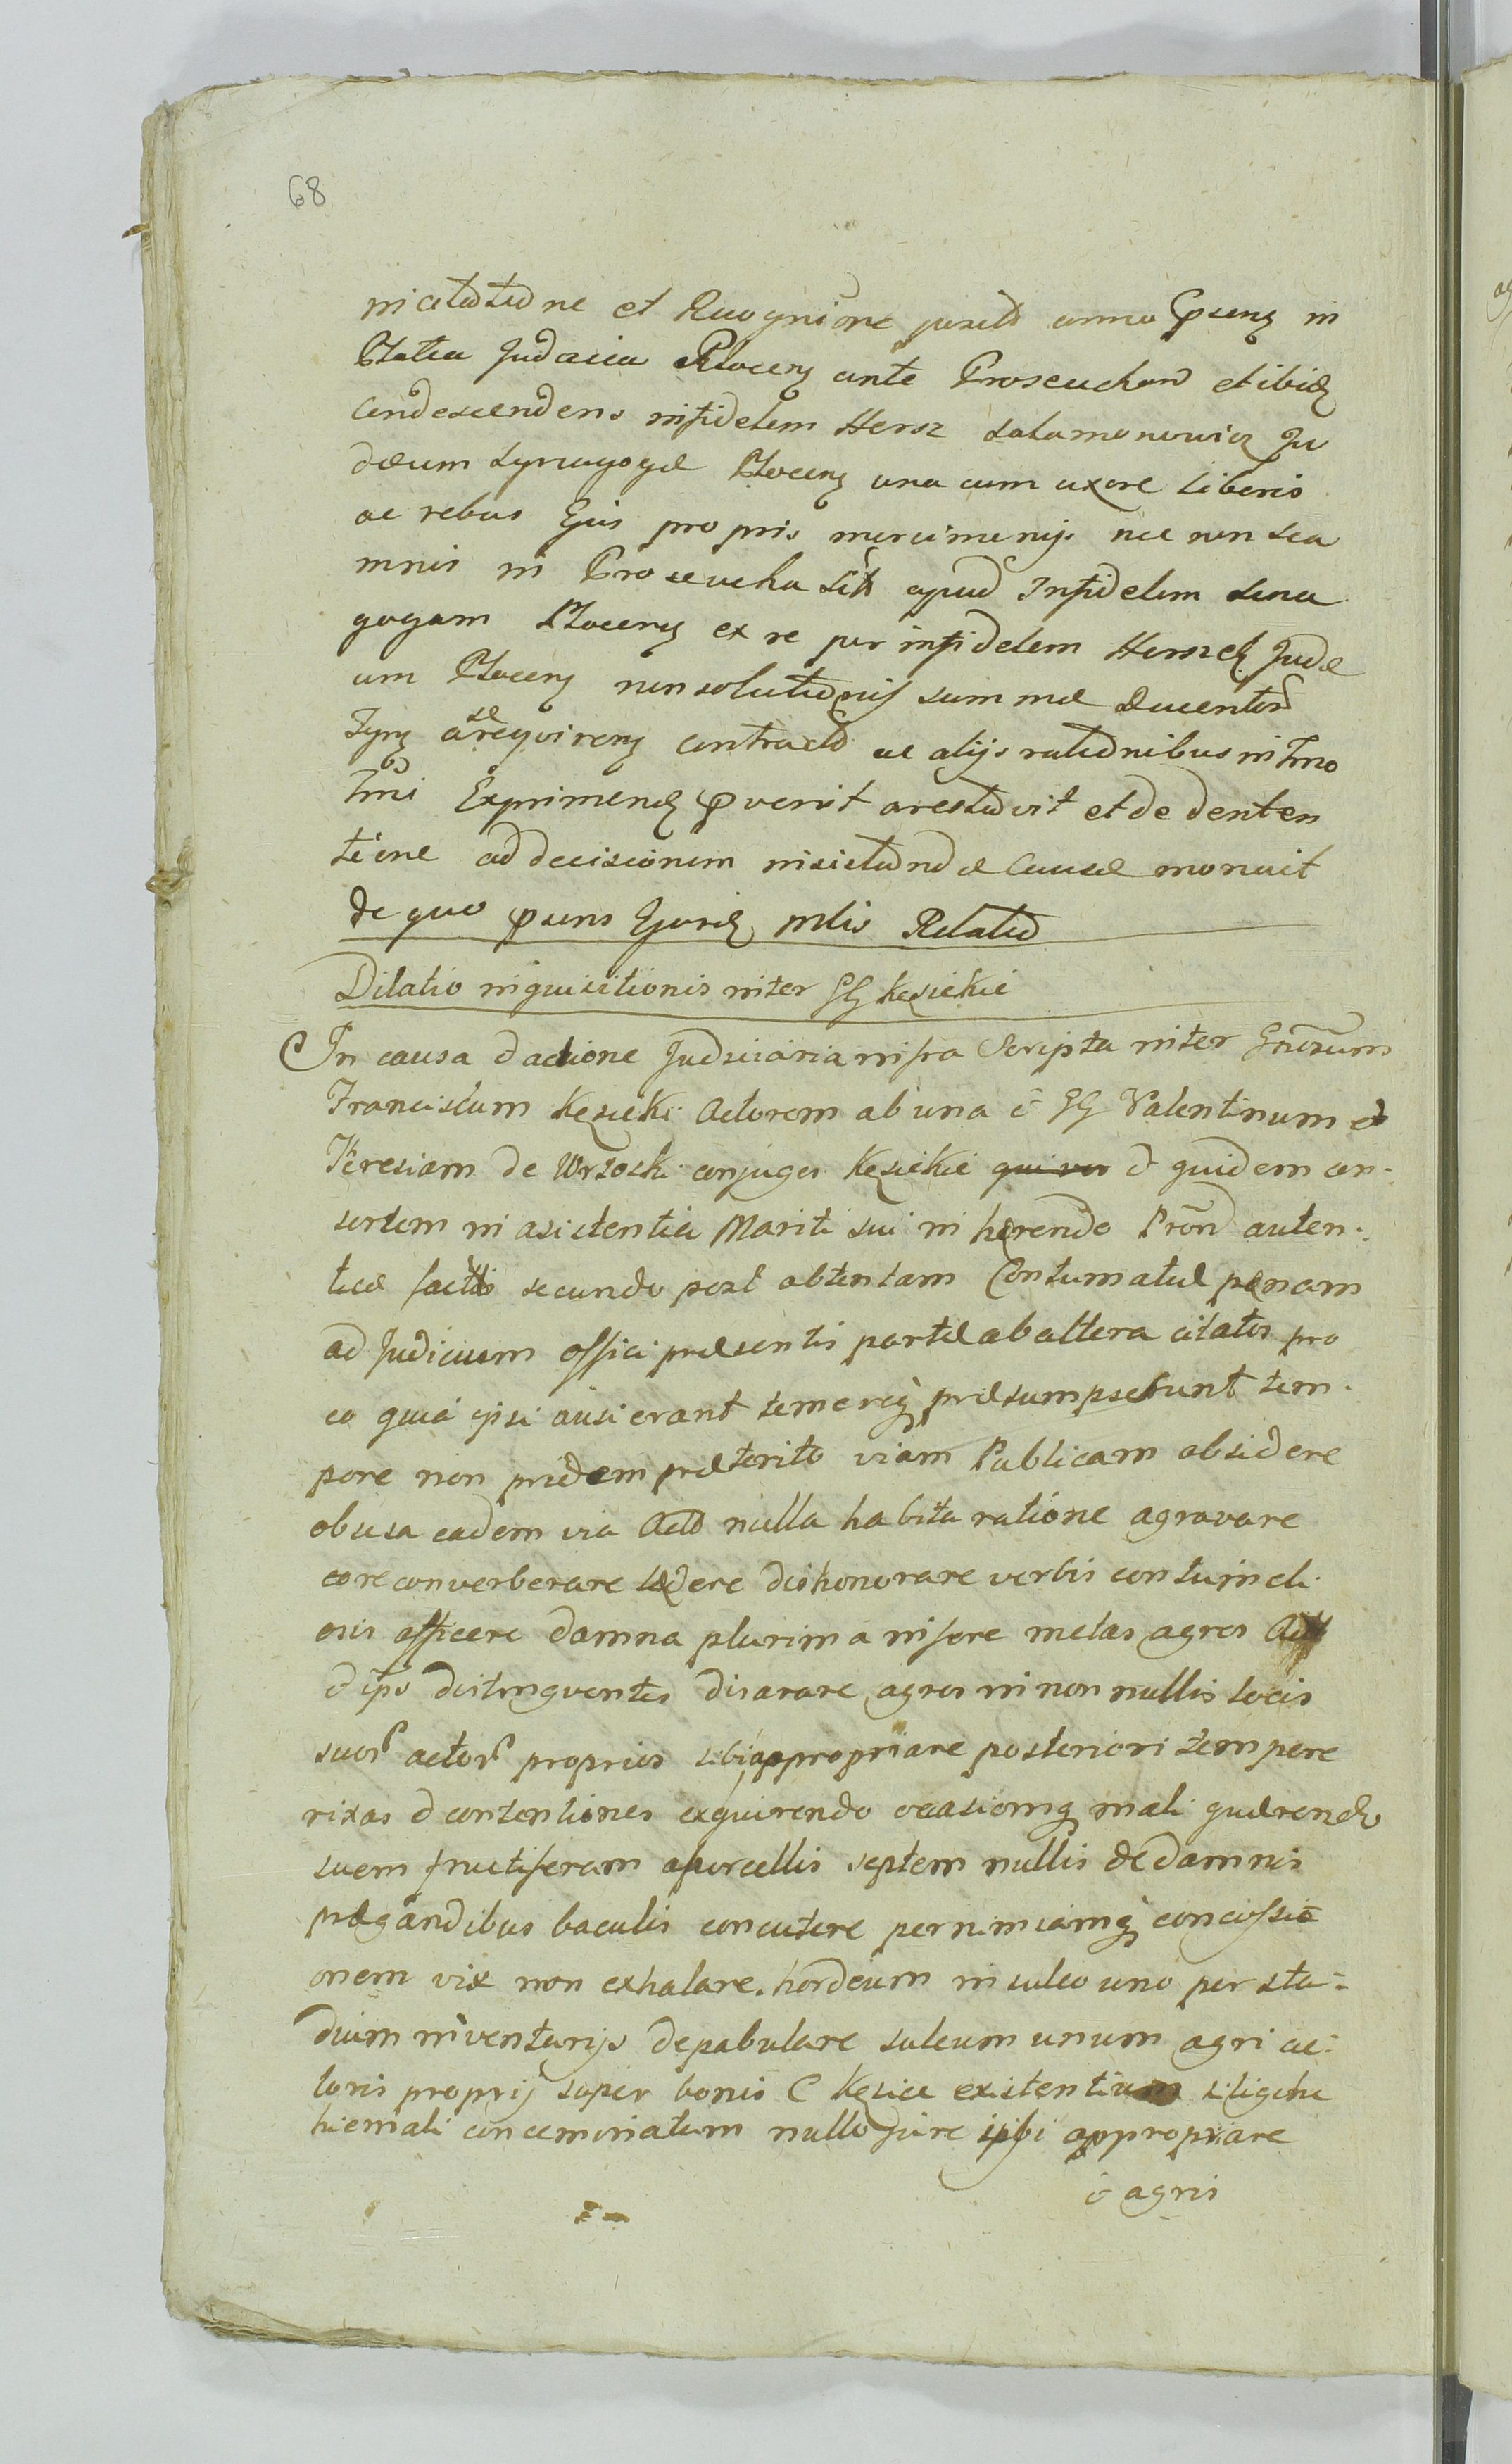 68
nictatione et Recognitione juxta anno psenq in
Platea Judaica Plocenq ante Proseucham et ibidq
condescendens infidelem Hersz Salamonowicz Ju
dæum Synagogæ Plocenq una cum uxore liberis
ac rebus Ejus propris mercimonijs nec non sca
mnis in Proseucha apud Infidelem Sina
gogam Plocenq ex re per infidelem Judæ
um Plocenq non summæ Ducentor
a se reqvirenq contractu ac alijs rationibus in Tmo
Tmi Exprimendq pvenit arestavit et de denten
tione ad decisionem insistendæ Causæ monuit
de quo psens Ejusdq mlis Relatio
Dilatio inquisitionis inter GG Kęsickie
In causa et actione Judiciaria infra Scripta inter Gnrosum
Franciscum Kęsicki Actorem ab una et GG Valentinum et
Teresiam de Wrzoski conjuges Kęsickie qui vos et quidem con-
sortem in asistentia Mariti sui in herendo auten-
ticæ secundo post obtentam Contumatiæ pænam
ad Judicium offici præsentis partæ ab altera citatos pro
eo quia ipsi ausi erant temereq præsumpserunt tem-
pore non pridem præterito viam Publicam obsidere
ob usa eadem via nulla habita ratione agravare
eore converberare lædere dishonorare verbis contumeli-
osis afficere damna plurima infere metas agros
et ipso distingventes disarare agros in non nullis locis
suor actor proprios sibi appropriare posteriori tempore
rixas et contentiones exquirendo ocasionmq mali quærendo
suem fructiferam a porcellis septem nullis de damnis
prægandibus baculis concutere pernimiamq concussi
onem vix non exhalare. hordeum in sulco uno per sta-
dium inventarijs depabulare sulcum unum agri ac-
toris proprij super bonis C Kęsice existentium siligine
hiemali concemoriatum nullo jure ipsi appropriare
et agris